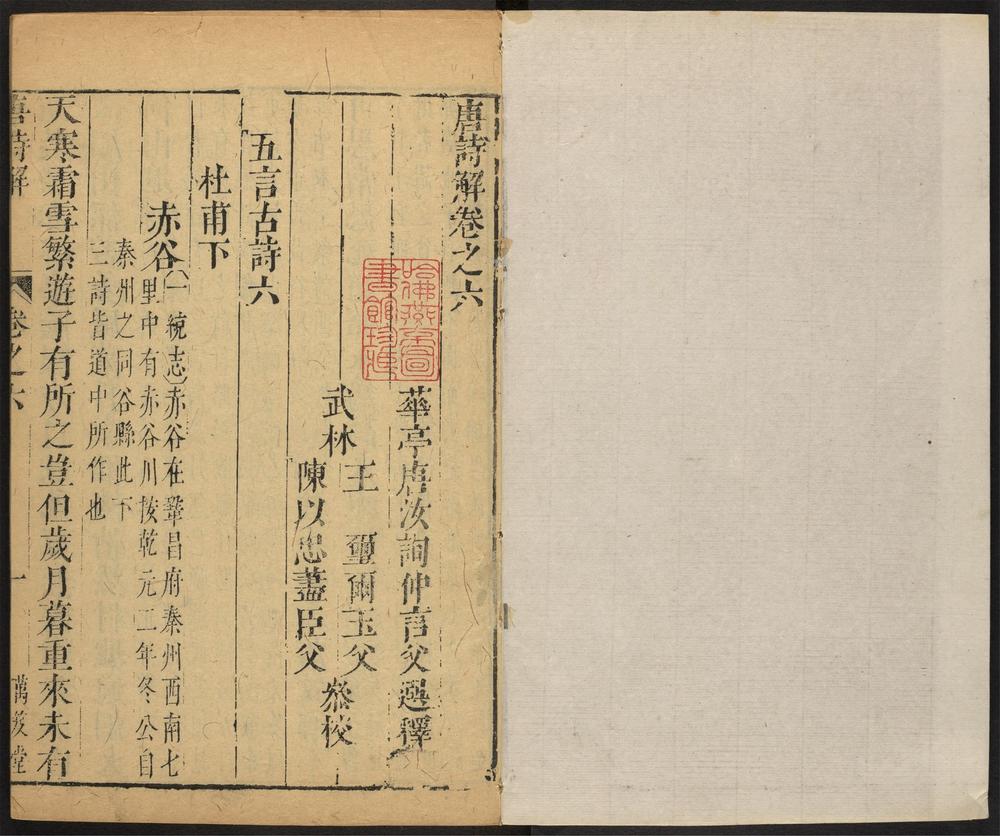 唐詩解卷之六
華亭唐汝詢仲言父選釋
哈佛燕京圖
書館珍藏
王 璽爾玉父
武林 叅校
陳以忠藎臣父
五言古詩六
杜甫下
赤谷
一統志赤谷在鞏昌府秦州西南七
里中有赤谷川按乾元二年冬公自
秦州之同谷縣此下
三詩皆道中所作也
天寒霜雪繁遊子有所之豈但歲月暮重來未有
唐詩解 卷之六 一 萬笈堂